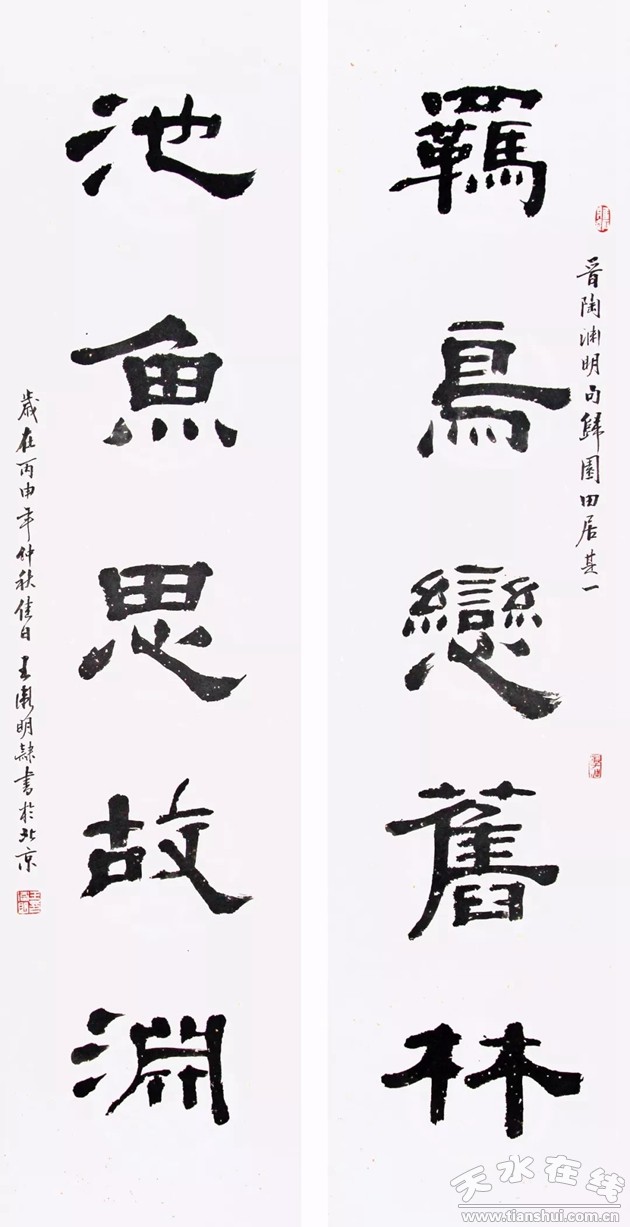 晉陶淵明句歸園田居其一
羈鳥戀舊林
池魚思故淵
歲在丙申年仲秋佳日 王明隸書於北京
天水在线
www.tianshui.com.cn